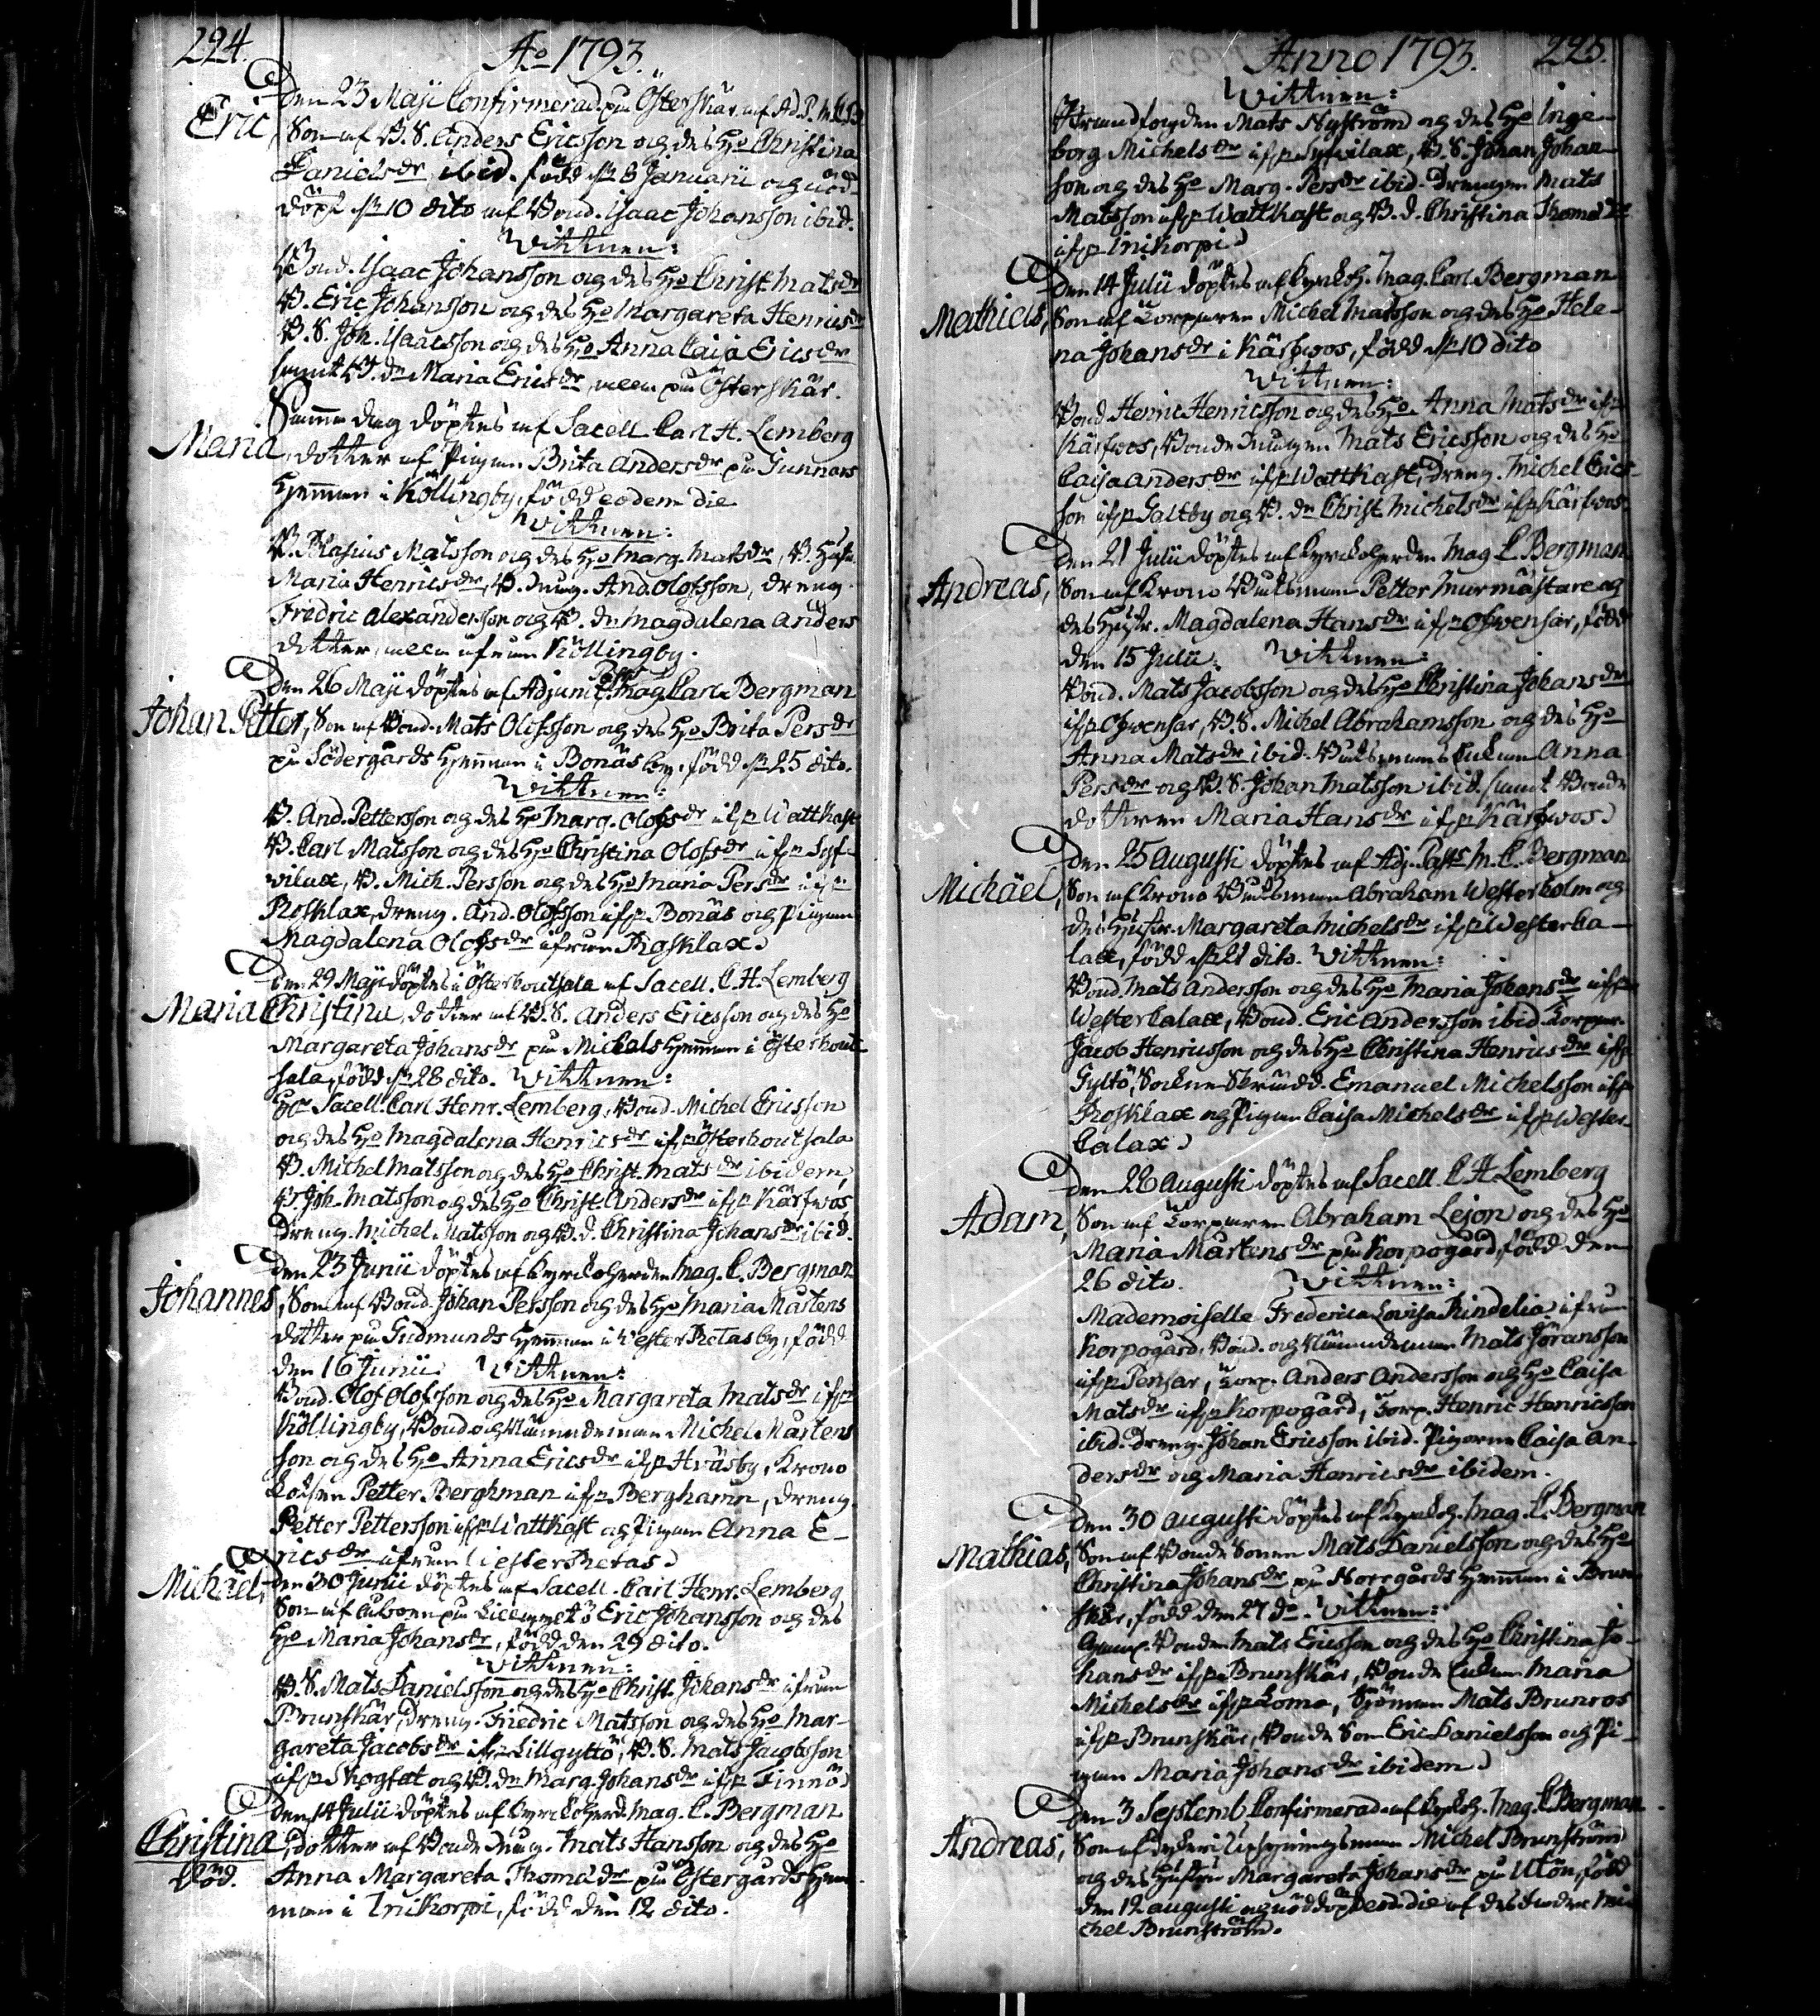 224.
Ao 1793.
Eric,
Den 23 Maji Confirmerad på Österskär af Ad. P. M. C. B.
Son af B. S. Anders Ericsson og des Ho Christina
Danielsdr ibid. född dn 8 Januarii og nöd-
döpt dn 10 dito af Bond. Isaac Johansson ibid.
Wittnen:
Bond. Isaac Johansson og des Ho Christ. Matsdr
B. Eric Johansson og des Ho Margareta Henricsdr
B. S. Joh. Isaacsson og des Ho Anna Caisa Ericsdr
samt B. dr Maria Ericsdr, alla på Österskär.
Maria,
Samma dag döptes af Sacell. Carl H. Lemberg
dotter af Pigan Brita Andersdr på Gunnars
Hemman i Köllingby, född eodem die
Wittnen:
B. Blasius Matsson og des Ho Marg. Matsdr, B. Hust.
Maria Henricsdr, B. Måg. And. Olofsson, dreng.
Fredric Alexandersson og B. dr Magdalena Anders
dotter, alla ifrån Köllingby.
Johan Petter,
Den 26 Maji döptes af Adjunct. Past. Mag. Carl Bergman
Son af Bond. Mats Olofsson og des Ho Brita Persdr
på Södergårds Hemman i Bonäs by. född dn 25 dito.
Wittnen:
B. And. Pettersson og des Ho Marg. Olofsdr ifrn Wattkast
B. Carl Matsson og des Ho Christina Olofsdr ifrn Syf-
vilax, B. Mich. Persson og des Ho Maria Persdr ifrn
Rosklax, dreng. And. Olofsson ifrn Bonäs og Pigan
Magdalena Olofsdr ifrån Rosklax.
Maria Christina,
Den 29 Maji döptes i Österhoutsala af Sacell. C. H. Lemberg
dotter af B. S. Anders Ericsson og des Ho
Margareta Johansdr på Mickels Hemman i Österhout-
sala, född dn 28 dito. Wittnen:
Hr Sacell. Carl Henr. Lemberg, Bond. Michel Ericsson
og des Ho Magdalena Henricsdr ifrn Österhoutsala
B. Michel Matsson og des Ho Christ. Matsdr ibidem,
B. Joh. Matsson og des Ho Christ. Andersdr ifrn Kärfwos
dreng Michel Matsson og B. d. Christina Johansdr ibid.
Johannes,
Den 23 Junii döptes af Kyrckoherden Mag. C. Bergman
Son af Bond. Johan Persson og des Ho Maria Mårtens
dotter på Gudmunds Hemman i Wester Retas by, född
den 16 Junii. Wittnen:
Bond. Olof Olofsson og des Ho Margareta Matsdr ifrn
Köllingby, Bond. og Nämndeman Michel Mårtens
son og des Ho Anna Ericsdr ifrn Hväsby, Krono
Lotsen Petter Berghman ifrn Berghamn, dreng.
Petter Pettersson ifrn Wattkast og Pigan Anna E-
ricsdr ifrån Wester Retas.
Michäel,
Den 30 Junii döptes af Sacell. Carl Henr. Lemberg
Son af Åboen på Lill Eric Johansson og des
Ho Maria Johansdr, född den 29 dito.
Wittnen:
B. S. Mats Danielsson og des Ho Christ. Johansdr ifrån
Brunskär, dreng. Friedric Matsson og des Ho Mar-
gareta Jacobsdr ifrn Lillgyltö, B. S. Mats Jacobsson
ifrn Skogfat og B. dr Marg. Johansdr ifrn Finnö
Christina,
död.
Den 14 Julii döptes af Kyrckoherd. Mag. C. Bergman
dotter af Bonde Mågen Mats Hansson og des Ho
Anna Margareta Thomædr på Östergårds Hem-
man i Inikorpi, född den 12 dito.
Anno 1793.
225.
Wittnen:
Strandfogden Mats Nyström og des Ho Inge-
borg Michelsdr ifrn Syfvilax, B. S. Johan Johan-
son og des Ho Marg. Persdr ibid. drengen Mats
Matsson ifrn Wattkast og B. d. Christina Thomædr
ifrn Inikorpi.
Mathiels,
Den 14 Julii döptes af Kyrckoh. Mag. Carl Bergman
Son af Torparen Michel Matsson og des Ho Hele-
na Johansdr i Kärfwos, född dn 10 dito
Wittnen:
Bond Henric Henricsson og des Ho Anna Matsdr ifrn
Kärfwos, Bonde Mågen Mats Ericsson og des Ho
Caisa Andersdr ifrn Wattkast, dreng. Michel Erics-
son ifrn Galtby og B. dr Christ Michelsdr ifrn Kärfwos.
Andreas,
Den 21 Julii döptes af Kyrckoherden Mag C. Bergman
Son af Krono Båtsman Petter Murmästare og
des Hustr. Magdalena Hansdr ifrn Ohwensar, född
den 15 Julii. Wittnen:
Bond. Mats Jacobsson og des Ho Christina Johansdr
ifrn Ohwensar, B. S. Michel Abrahamsson og des Ho
Anna Matsdr ibid. Båtsmans Enkan Anna
Persdr og B. S. Johan Matsson ibid. samt Bonde
dottren Maria Hansdr ifrn Kärfwos.
Michäel,
Den 25 Augusti döptes af Adj. Pastr M. C. Bergman
Son af Krono Båtsman Abraham Westerholm og
des Hustr. Margareta Michelsdr ifrn Westerka-
lax, född dn 21 dito. Wittnen:
Bond. Mats Andersson og des Ho Maria Johansdr ifrn
Westercalax, Bond. Eric Andersson ibid. Torpar.
Jacob Henricsson og des Ho Christina Henricsdr ifrn
Gyltö, Sockne Skrädd. Emanuel Michelsson ifrn
Rosklax og Pigan Caisa Michelsdr ifrn Wester-
Calax.
Adam,
Den 28 Augusti döptes af Sacell. C H Lemberg
Son af Torparen Abraham Lejon og des Ho
Maria Mårtensdr på Korpogård, född den
26 dito. Wittnen:
Mademoiselle Frederica Lovisa Rindelia ifrån
Korpogård, Bond. og Nämndeman Mats Jöransson
ifrn Pensar, Torp. Anders Andersson og Ho Caisa
Matsdr ifrn Korpogård, Torp. Henric Henricsson
ibid. dreng. Johan Ericsson ibid. Pigorna Caisa An-
dersdr og Maria Henricsdr ibidem.
Mathias,
Den 30 Augusti döptes af Kyrckoh. Mag. C. Bergman
Son af Bonde Sonen Mats Danielsson og des Ho
Christina Johansdr på Norrgårds Hemman i Brun-
skär, född den 27 do. Wittnen:
Bonden Mats Ericsson og des Ho Christina Jo-
hansdr ifrn Brunskär, Bonde Enkan Maria
Michelsdr ifrn Lomo, Mats Brunros
ifrn Brunskär, Bonde Son Eric Danielsson og Pi-
gan Maria Johansdr ibidem.
Andreas,
Den 3 Septemb. Confirmerad af Kyrkoh. Mag. C Bergman
Son af Michel Brunström
og des Hustru Margareta Johansdr på Utön, född
den 12 Augusti og nöddöpt eod. die af des Fader Mi-
chel Brunström.